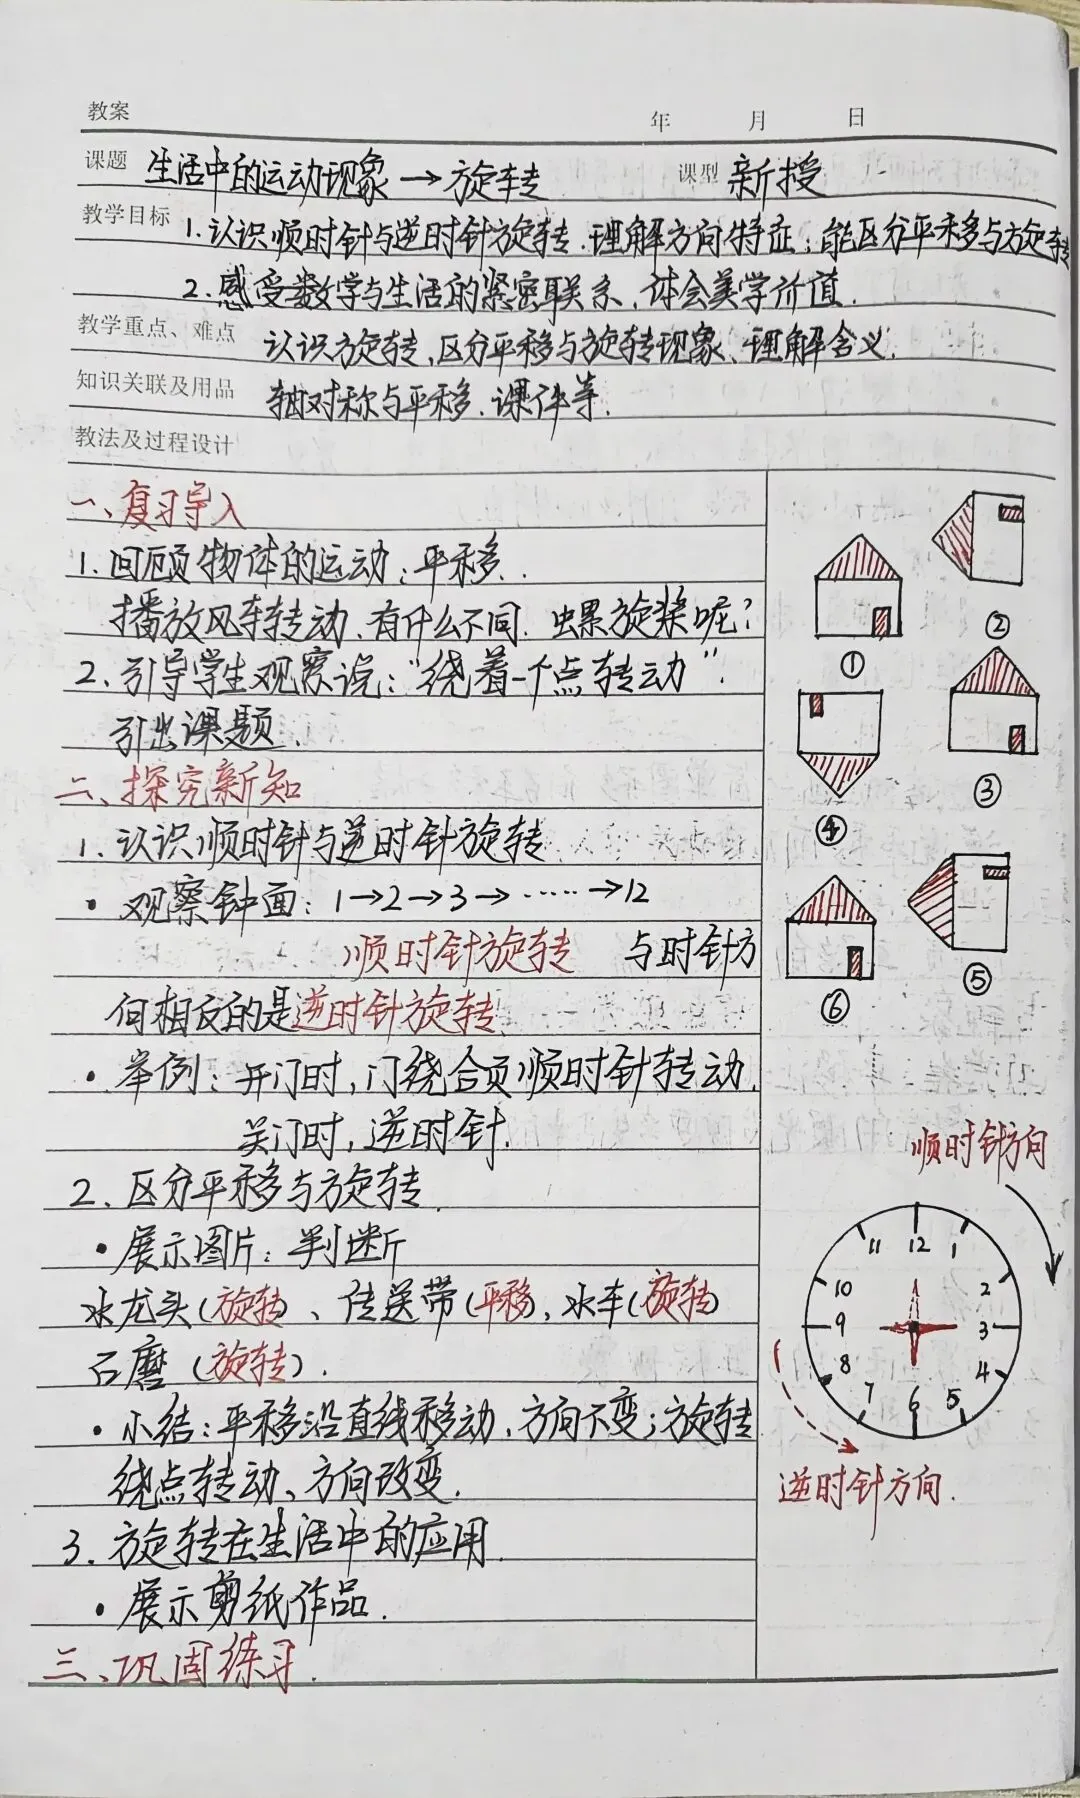 教案
年 月 日
课题 生活中的运动现象→旋转 课型 新授
教学目标 1.认识顺时针与逆时针旋转.理解方向特征；能区分平移与旋转
2.感受数学与生活的紧密联系，体会美学价值.
教学重点、难点 认识旋转，区分平移与旋转现象、理解含义.
知识关联及用品 轴对称与平移.课件等.
教法及过程设计
一、复习导入
1.回顾物体的运动：平移.
播放风车转动、有什么不同.螺旋桨呢？
2.引导学生观察说：“绕着一个点转动”.
引出课题.
二、探究新知
1.认识顺时针与逆时针旋转
·观察钟面：1→2→3→……→12
顺时针旋转 与时针方
向相反的是逆时针旋转.
·举例：开门时，门绕合页顺时针转动.
关门时，逆时针.
2.区分平移与旋转.
·展示图片：判断
水龙头(旋转)、传送带(平移)、水车(旋转)
石磨(旋转).
·小结：平移沿直线移动，方向不变；旋转
绕点转动、方向改变.
3.旋转在生活中的应用.
·展示剪纸作品.
三、巩固练习.
①
②
③
④
⑤
⑥
顺时针方向
11 12 1
10 2
9 3
8 4
7 6 5
逆时针方向.